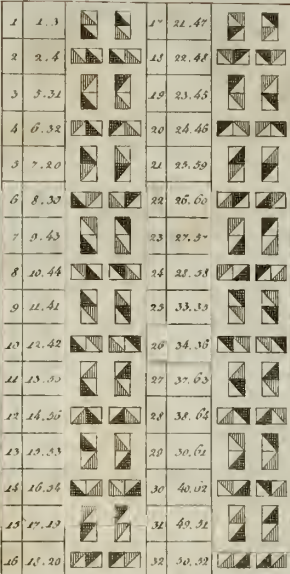 1 1.3 17 21.47
2 2.4 18 22.48
3 5.31 19 23.45
4 6.32 20 24.46
5 7.29 21 25.59
6 8.30 22 26.60
7 9.43 23 27.57
8 10.44 24 28.58
9 11.41 25 33.35
10 12.42 26 34.36
11 13.55 27 37.63
12 14.56 28 38.64
13 15.53 29 39.61
14 16.54 30 40.62
15 17.19 31 49.51
16 18.20 32 50.52